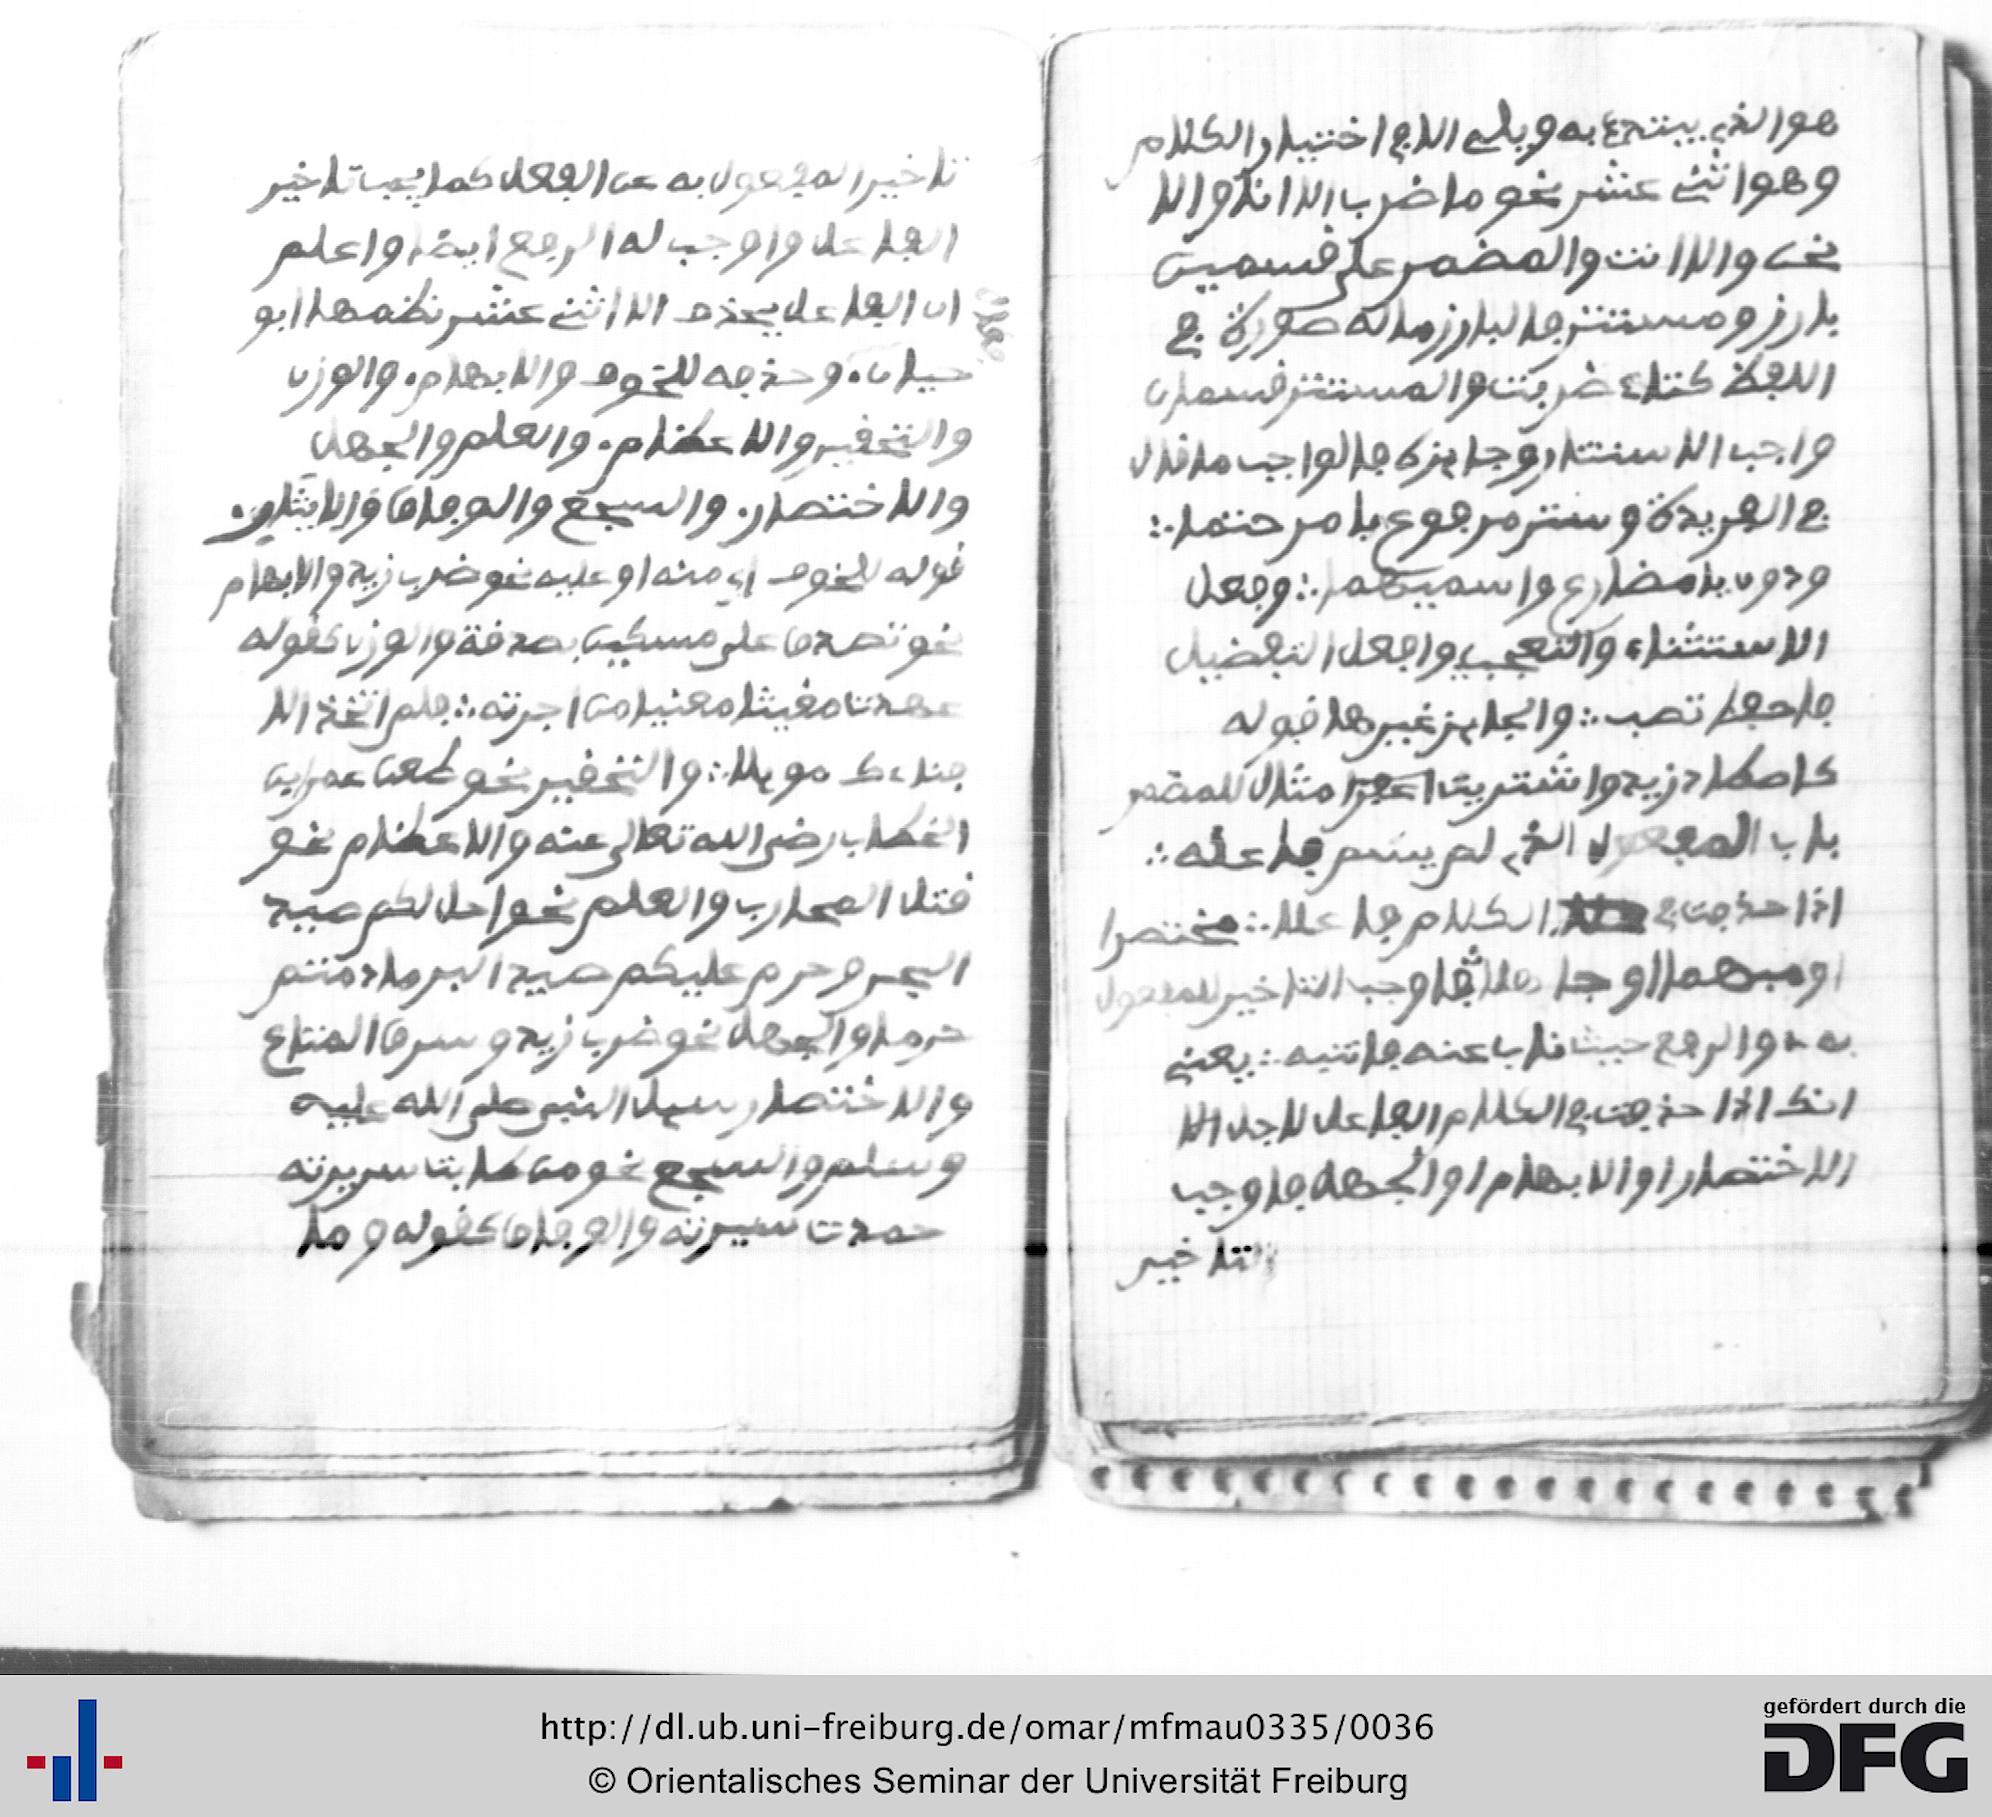 هو الذي يبتدئ به ويلي الا في اختيار الكلام
وهو اثني عشر نحو ما ضرب الا انا والا
نحن والا انت والمضمر على قسمين
بارز ومستتر فالبارز ماله صورة في
اللفظ كتاء ضربت والمستتر قسمان
واجب الاستتار وجايزه فالواجب ما قال
في الفريدة وستر مرفوع بامر حتما ∴
ودون يا مضارع واسميهما ∴ وفعل
الاستثناء والتعجب وافعل التفضيل
فاحفظ تصب ∴ والجايز غيرها قوله
كاصطاد زيد واشتريت اعفرا مثال للمضمر
باب المفعول الذي لم يسم فاعله ∴
اذا حذفت في الكلام فاعلا ∴ مختصرا
او مبهما او جاهلا فاوجب التاخير للمفعول
به والرفع حيث ناب عنه فانتبه ∴ يعني
انك اذا حذفت في الكلام الفاعل لاجل الا
الاختصار او الابهام او الجهل فاوجب
التاخير
تاخير المفعول به عن الفعل كما يجب تاخير
الفاعل واوجب له الرفع ايضا واعلم
ان الفاعل يحذف الا اثني عشر نظمها ابو
حيان. وحذفه للخوف والابهام. والوزن
والتحقير والاعظام. والعلم والجهل
والاختصار. والسجع والوفاق والايثار.
قوله للخوف اي منه او عليه نحو ضرب زيد والابهام
نحو تصدق على مسكين بصدقة والوزن كقوله
عهدت مغيثا مغنيا من اجرته ∴ فلم اتخذ الا
فناءك موئلا ∴ والتحقير نحو طعن عمر ابن
الخطاب رضي الله تعالى عنه والاعظام نحو
قتل المحارب والعلم نحو احل لكم صيد
البحر وحرم عليكم صيد البر ما دمتم
حرما والجهل نحو ضرب زيد وسرق المتاع
والاختصار سيل النبي صلى الله عليه
وسلم والسجع نحو من طابت سريرته
حمدت سيرته والوفاق كقوله وما
http://dl.ub.uni-freiburg.de/omar/mfmau0335/0036
© Orientalisches Seminar der Universität Freiburg
gefördert durch die
DFG